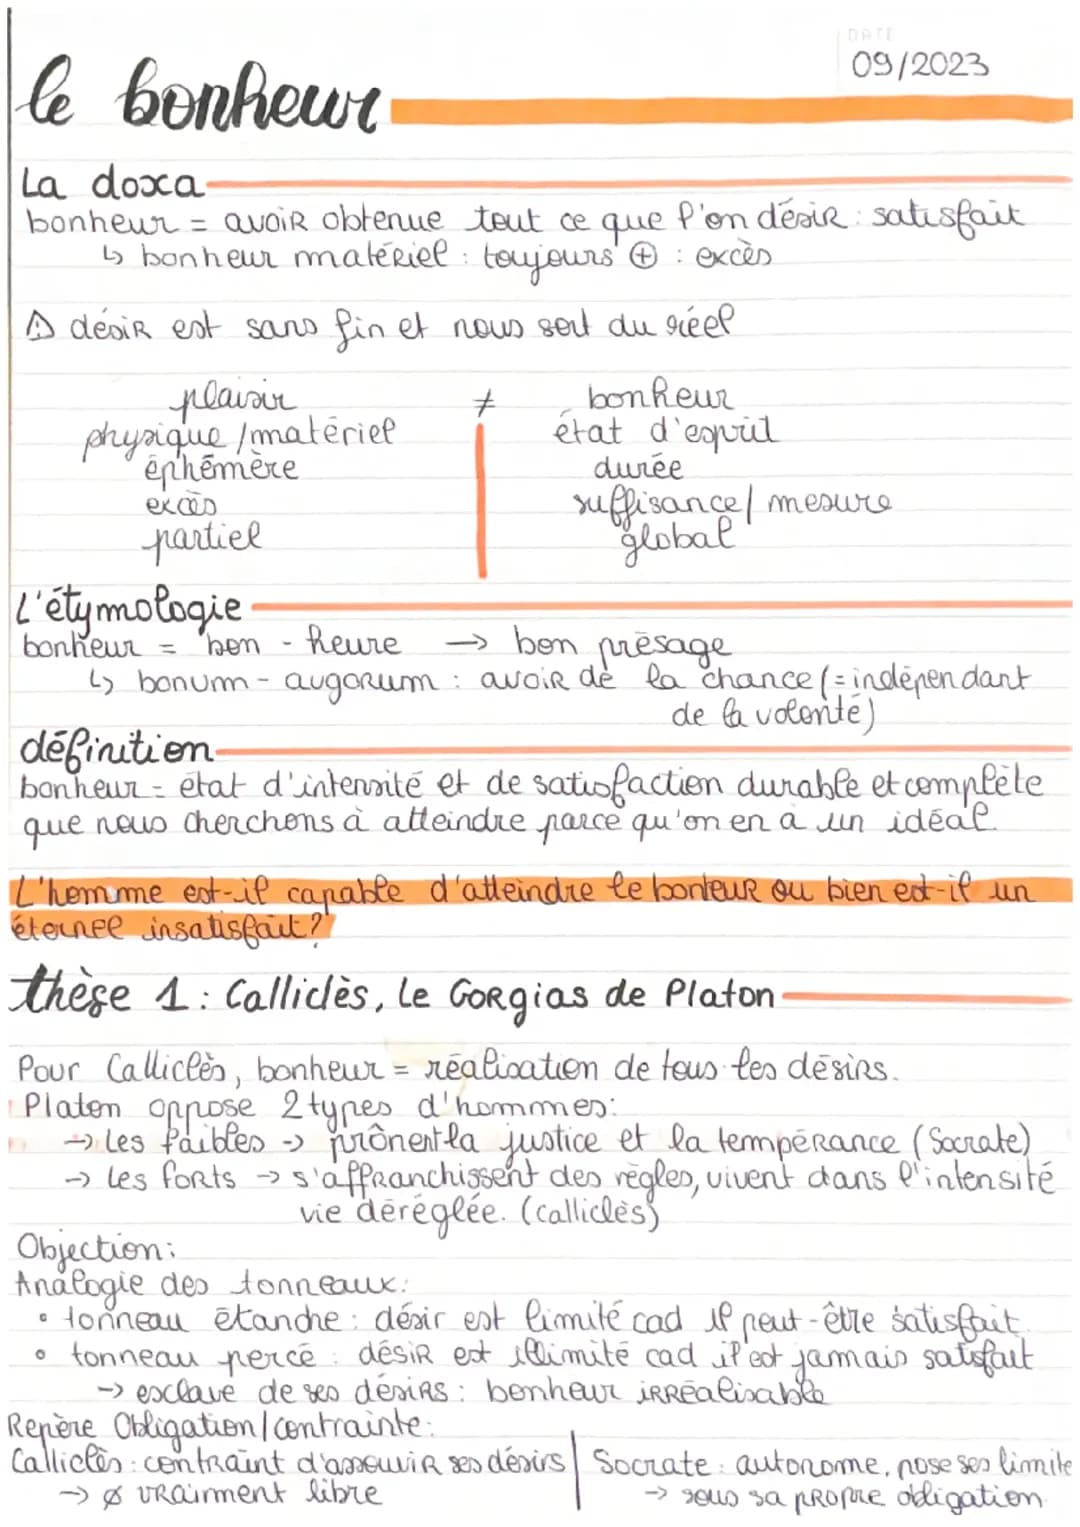 DATE
09/2023
le bonheur
La doxa
bonheur = avoir obtenue tout ce que l'on désir : satisfait
↳ bonheur matériel : toujours ⊕ : excès
⚠ désir est sans fin et nous sort du réel
plaisir ≠ bonheur
physique / matériel état d'esprit
éphémère durée
excès suffisance / mesure
partiel global
L'étymologie
bonheur = bon - heure → bon présage
↳ bonum - augorum : avoir de la chance (= indépendant
de la volonté)
définition
bonheur = état d'intensité et de satisfaction durable et complète
que nous cherchons à atteindre parce qu'on en a un idéal.
L'homme est-il capable d'atteindre le bonheur ou bien est-il un
éternel insatisfait ?
thèse 1 : Calliclès, Le Gorgias de Platon
Pour Calliclès, bonheur = réalisation de tous les désirs.
Platon oppose 2 types d'hommes :
→ Les faibles → prônent la justice et la tempérance (Socrate)
→ Les forts → s'affranchissent des règles, vivent dans l'intensité
vie déréglée. (calliclès)
Objection :
Analogie des tonneaux :
• tonneau étanche : désir est limité cad il peut-être satisfait.
• tonneau percé : désir est illimité cad il est jamais satisfait
→ esclave de ses désirs : bonheur irréalisable
Repère Obligation / contrainte :
Calliclès : contraint d'assouvir ses désirs | Socrate : autonome, pose ses limite
→ ∅ vrairment libre → sous sa propre obligation